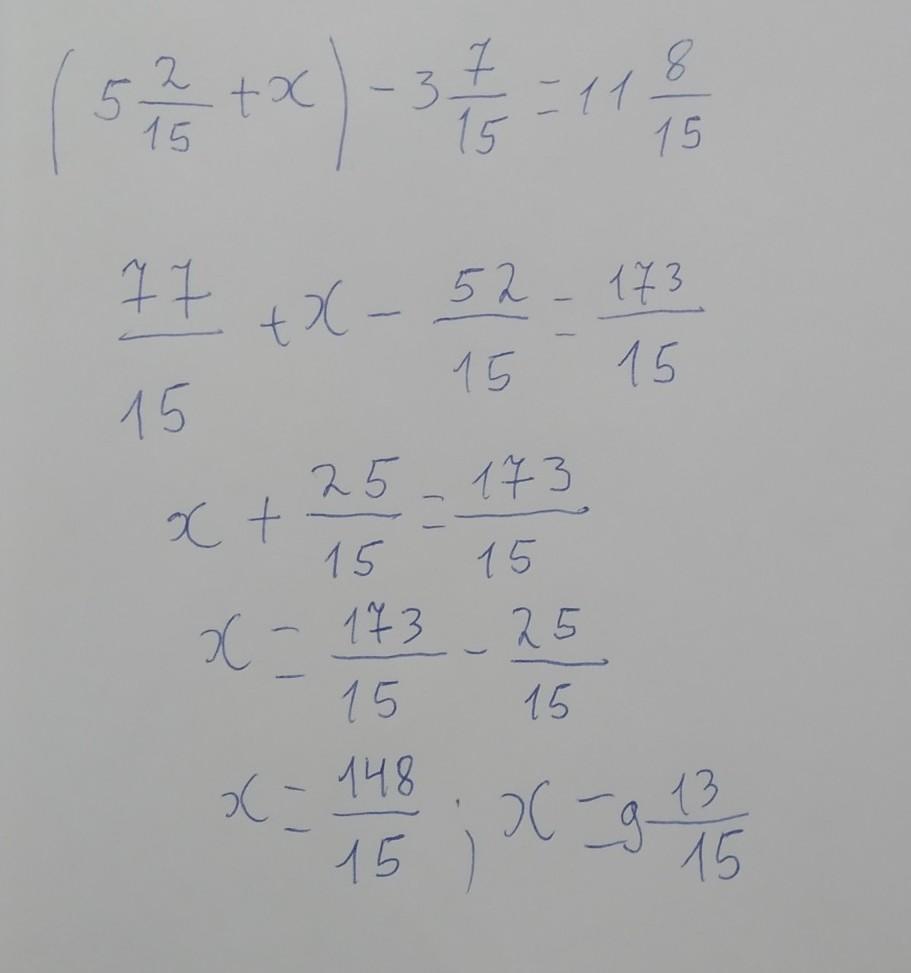 (5 2/15 + x) - 3 7/15 = 11 8/15
77/15 + x - 52/15 = 173/15
x + 25/15 = 173/15
x = 173/15 - 25/15
x = 148/15 ; x = 9 13/15